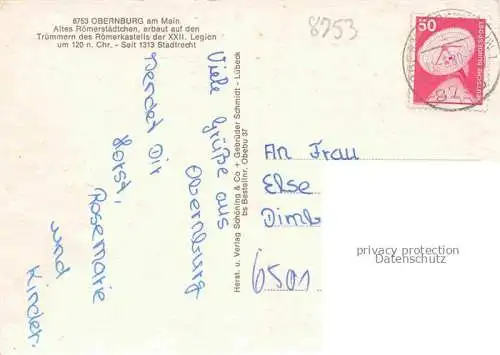 8753 OBERNBURG am Main
Altes Römerstädtchen, erbaut auf den
Trümmern des Römerkastells der XXII. Legion
um 120 n. Chr. - Seit 1313 Stadtrecht
8753
50
DEUTSCHE BUNDESPOST
Viele Grüße aus
Obernburg
sendet Dir
Horst,
Rosemarie
und
Kinder.
Herst. u. Verlag Schöning & Co + Gebrüder Schmidt - Lübeck
bs Bestellnr. Obebu 37
An Frau
Else
Dimb
6501
privacy protection
Datenschutz